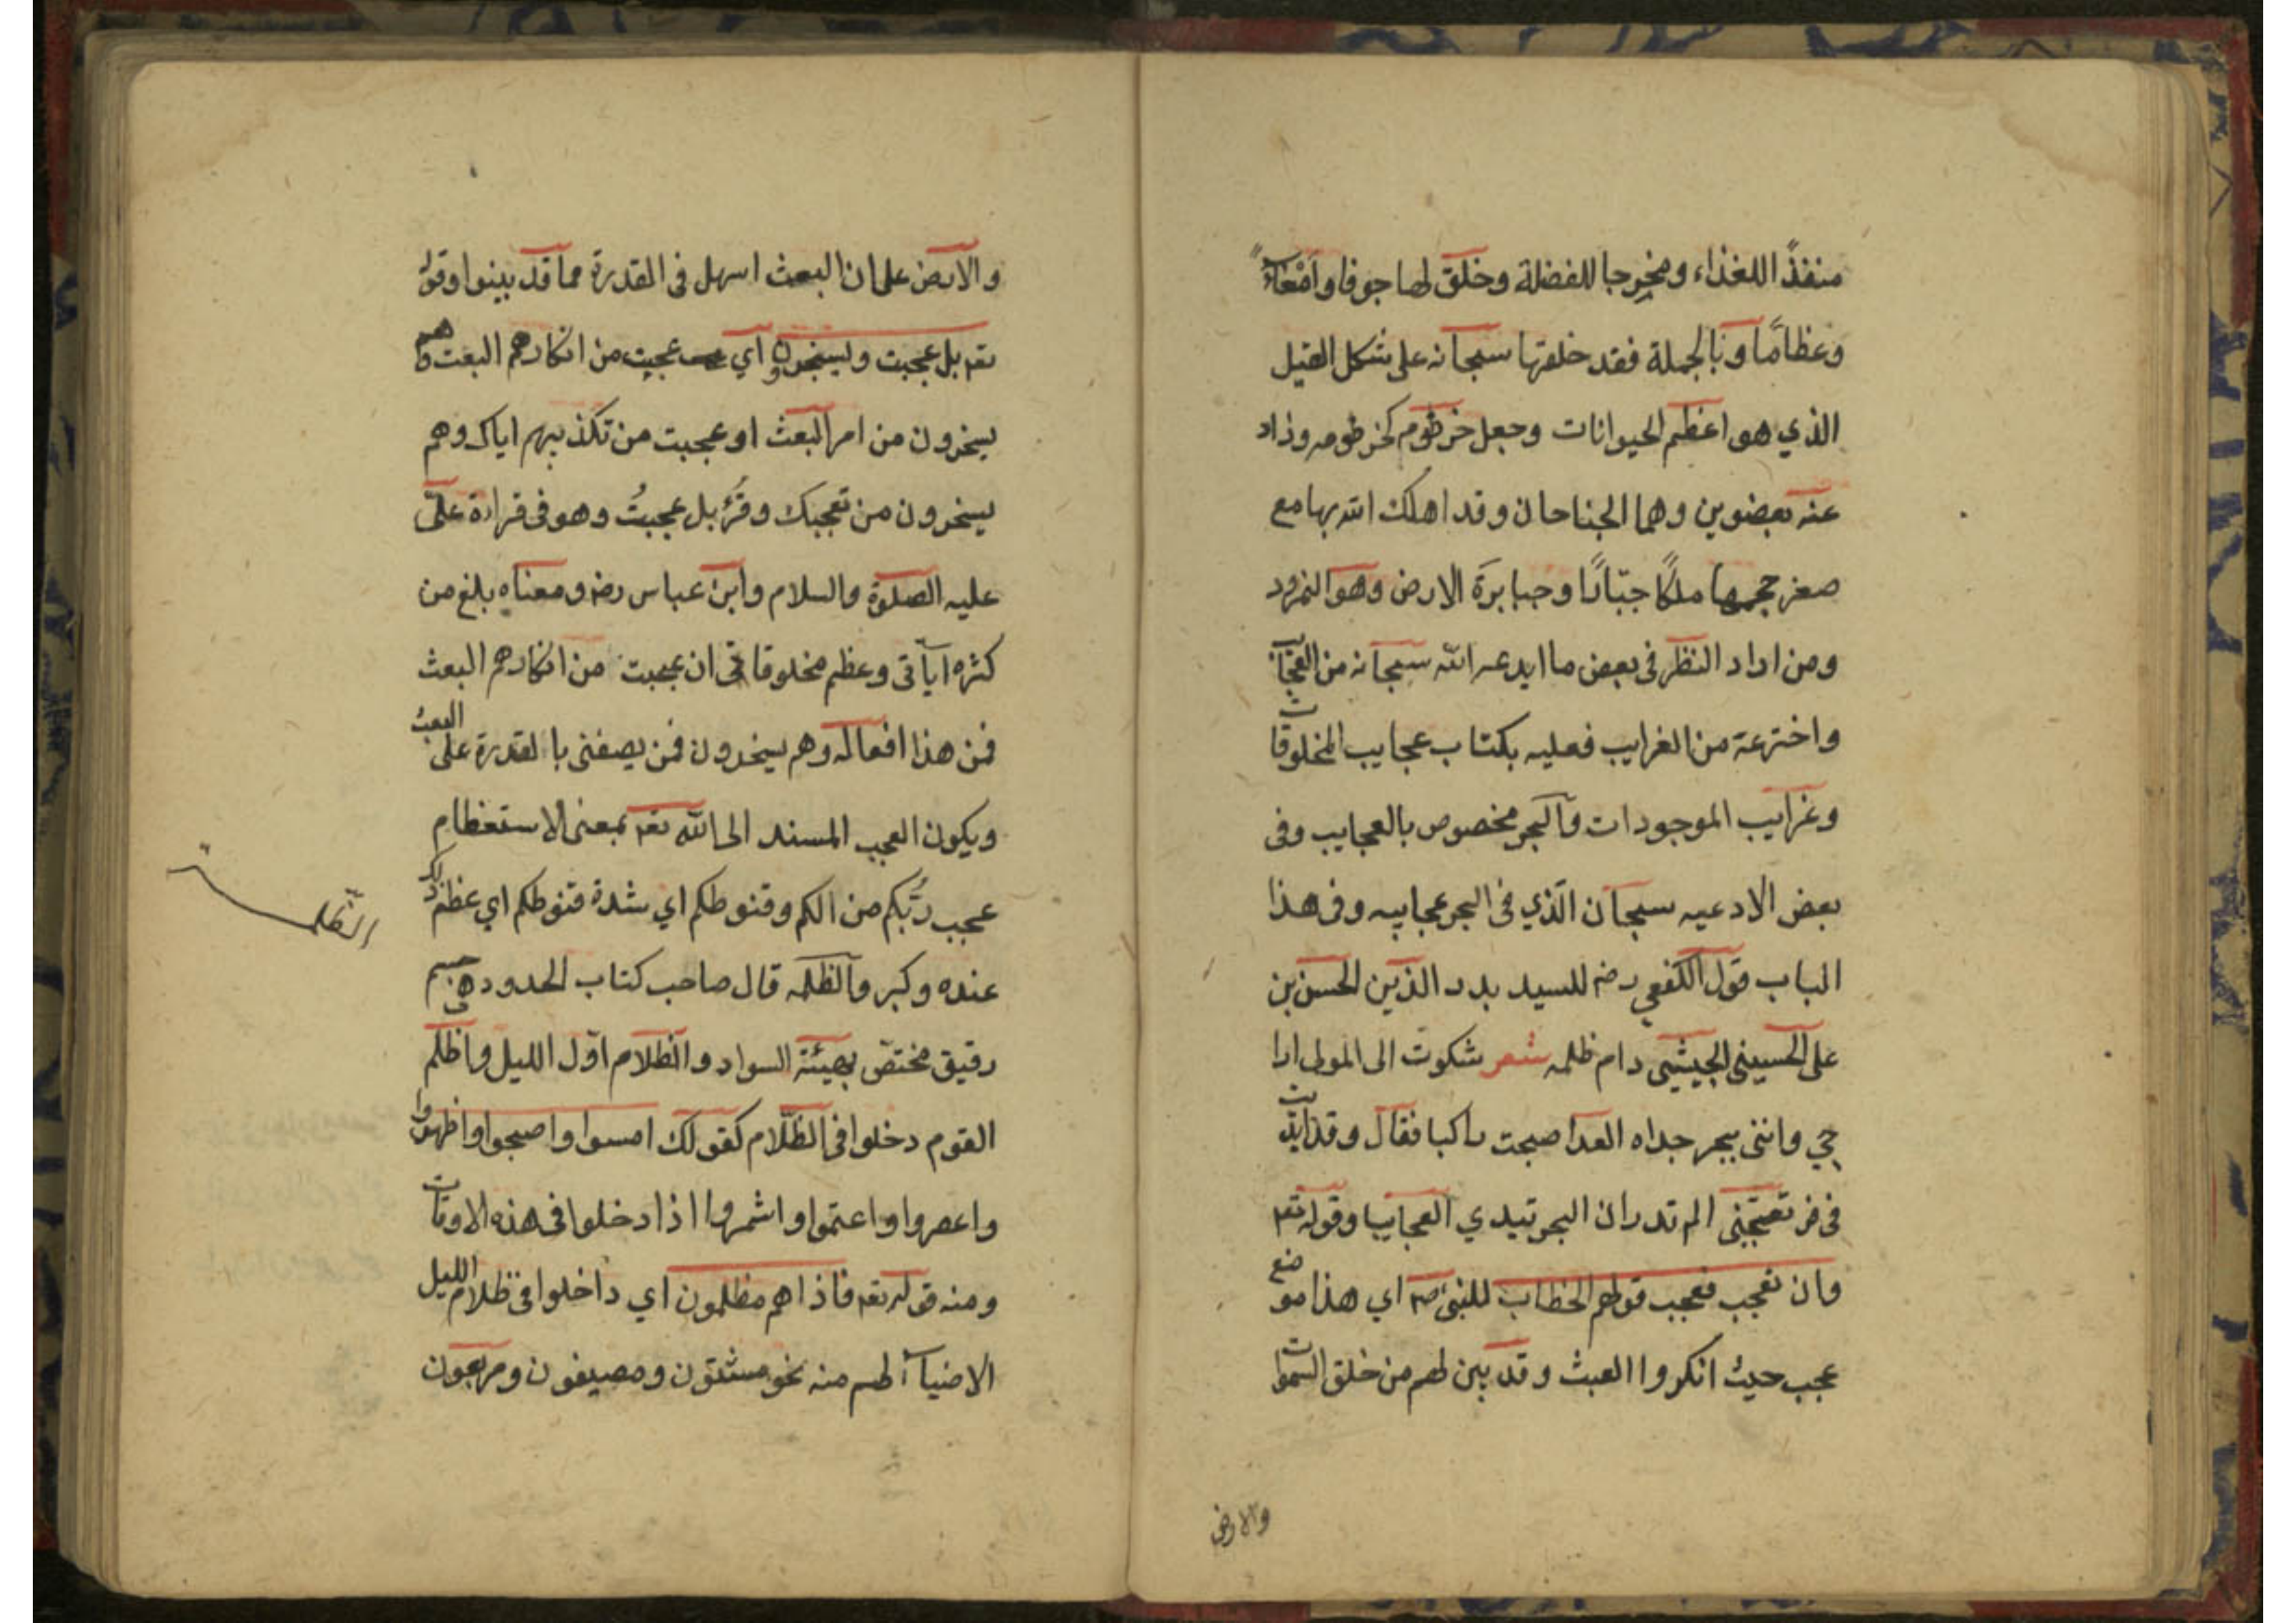 منفذًا للغذاء ومخرجا للفضلة وخلق لها جوفا وامعاءً
وعظامًا وبالجملة فقد خلقها سبحانه على شكل الفيل
الذي هو اعظم الحيوانات وجعل خرطوم كخرطومه وزاد
عنه بعضوين وهما الجناحان وقد اهلك الله بها مع
صغر حجمها ملكًا جبّارًا وجبابرَة الارض وهو النمرود
ومن اراد النظر في بعض ما ابدعه الله سبحانه من العجايب
واخترعة من الغرايب فعليه بكتاب عجايب المخلوقات
وغرايب الموجودات والبحر مخصوص بالعجايب وفى
بعض الادعيه سبحان الّذي فى البحر عجايبه وفى هذا
الباب قول الكفعمي رضه للسيد بدر الدّين الحسن بن
على الحسينى دام ظله شعر شكوت الى المولى
وانني ببحر جداه العدا صبحت راكبا فقال وقد
الم تدر ان البحر تبدي العجايبا وقوله تعه
وان تعجب فعجب قولهم الخطاب للنبى صم اي هذا موضع
عجب حيث انكروا العبث وقد بين لهم من خلق السموات
والارض
والارض على ان البعث اسهل فى القدرة مما قد بينوا وقوله
تعه بل عجبت ويسخرون اي عجبت من انكارهم البعث وهم
يسخرون من امر البعث او عجبت من تكذيبهم اياك وهم
يسخرون من تعجبك وقرُئ بل عجبتُ وهو فى قراءة علىّ
عليه الصلوة والسلام وابن عباس رضه ومعناه بلغ من
كثره آياتى وعظم مخلوقاتى ان عجبت من انكارهم البعث
فمن هذا افعاله وهم يسخرون فمن يصفنى بالقدرة على البعث
ويكون العجب المسند الى الله تعه بمعنى الاستعظام
عجب ربُّكم من الكم وقنوطكم اي شدة قنوطكم اي عظم ذلك
عنده وكبر والظلمه قال صاحب كتاب الحدود هى جسم
رقيق مختصّ بهيئة السواد والظلام اوّل الليل واظلم
القوم دخلوا فى الظّلام كقولك امسوا واصبحوا واظهروا
واعصروا واعتموا واشهروا اذا دخلوا فى هذه الاوقات
ومنه قوله تعه فاذا هم مظلمون اي داخلوا فى ظلام الليل
لهم منه نحو مشتون ومصيفون ومربعون
الظلمة